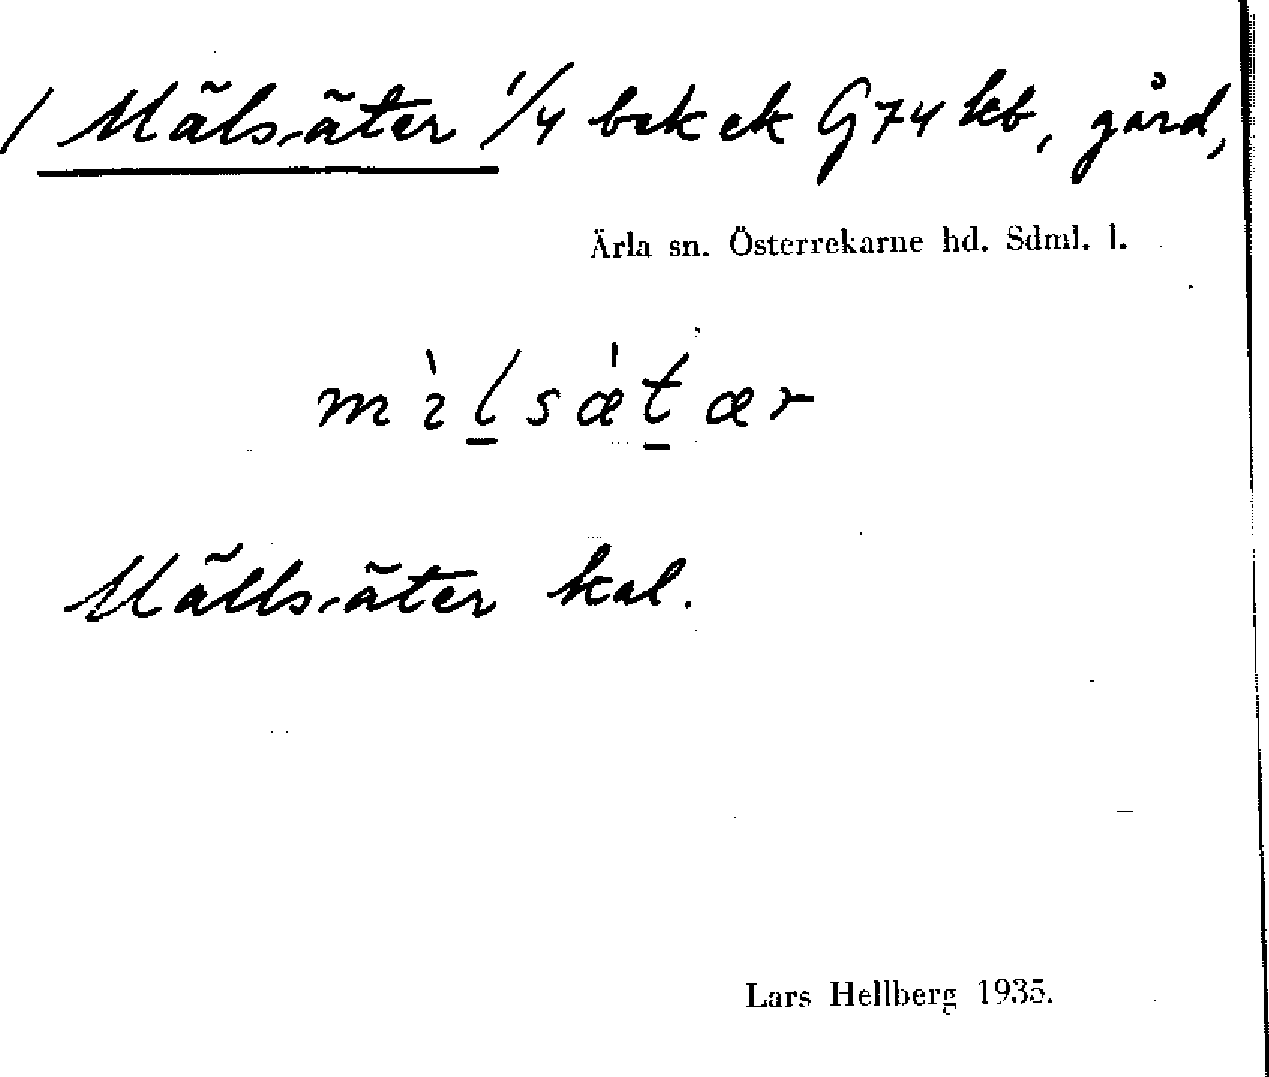 / Mälsäter 1/4 bok ek G74 kb, gård,
Ärla sn. Österrekarne hd. Sdml. l.
Mällsäter kal.
Lars Hellberg 1935.